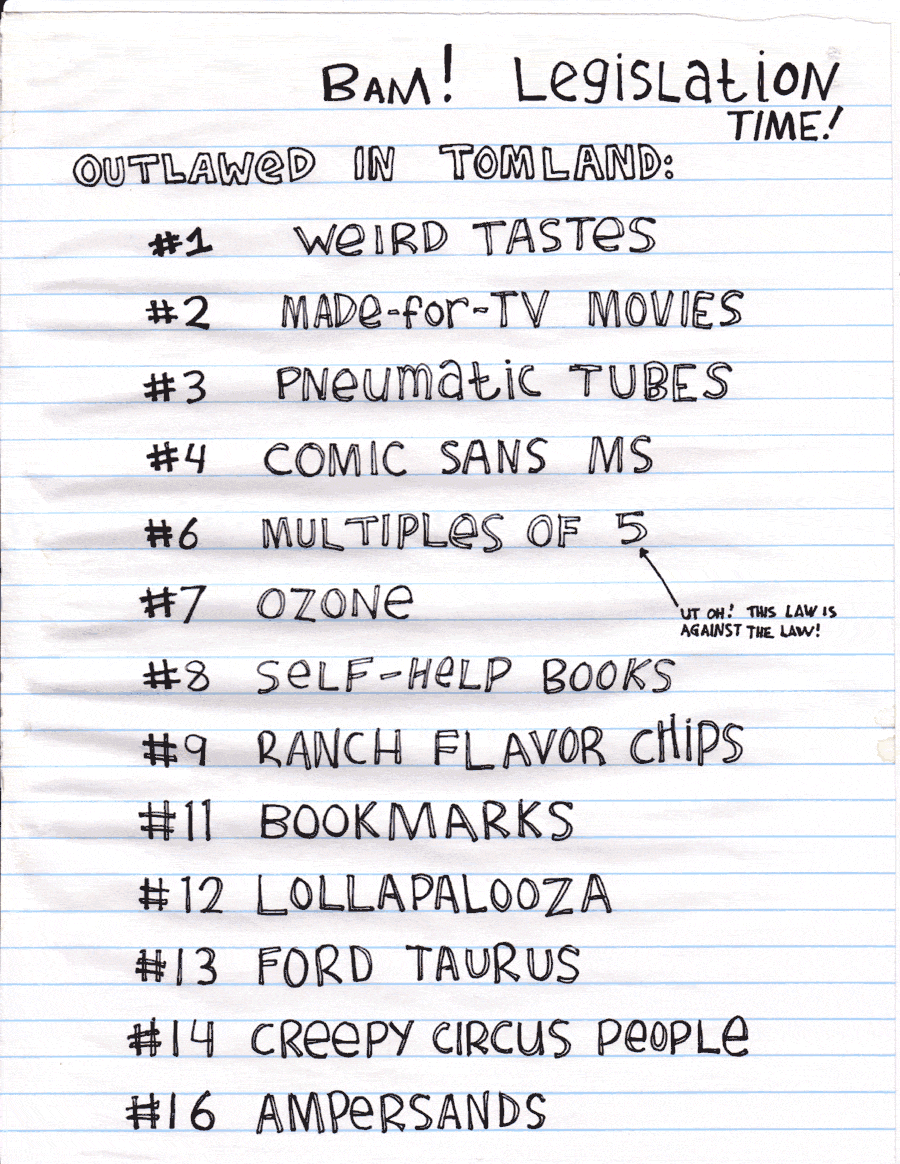 BAM! Legislation
TIME!
OUTLAWeD IN TOMLAND:
#1 WeIRD TASTeS
#2 MADe-for-TV MOVIES
#3 PNeumatic TUBES
#4 COMIC SANS MS
#6 MULTIPLeS OF 5
#7 OZONe
UT OH! THIS LAW IS
AGAINST THE LAW!
#8 SeLF-HeLP BOOKS
#9 RANCH FLAVOR CHiPS
#11 BOOKMARKS
#12 LOLLAPALOOZA
#13 FORD TAURUS
#14 CReePY CIRCUS PeOPLe
#16 AMPeRSANDS